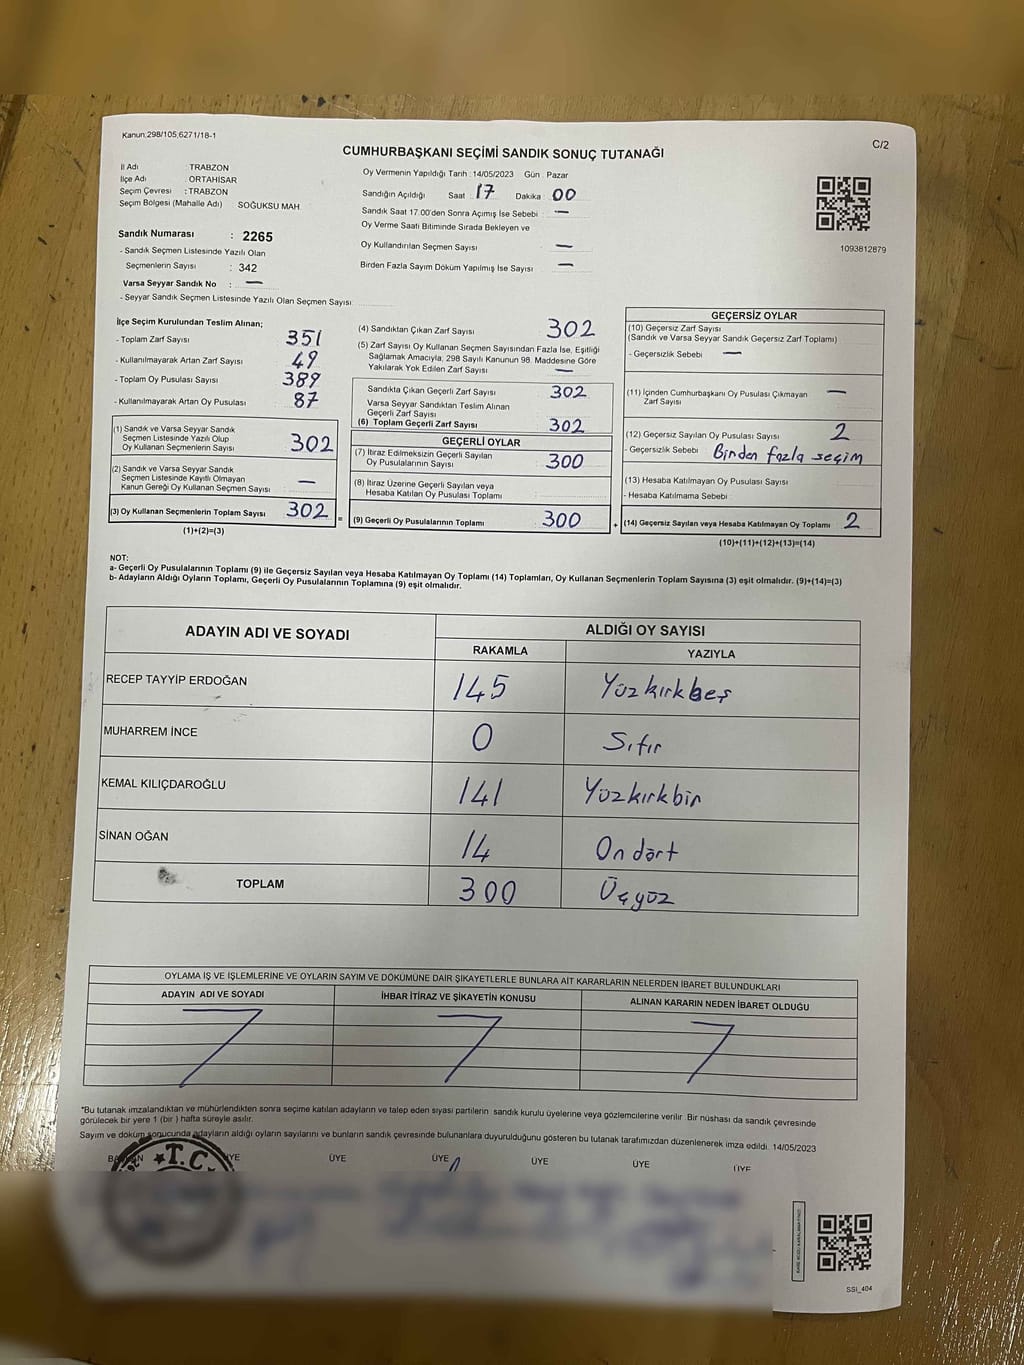 Kanun;298/105;6271/18-1
C/2
CUMHURBAŞKANI SEÇİMİ SANDIK SONUÇ TUTANAĞI
İl Adı : TRABZON
İlçe Adı : ORTAHİSAR
Seçim Çevresi : TRABZON
Seçim Bölgesi (Mahalle Adı) SOĞUKSU MAH.
Sandık Numarası : 2265
- Sandık Seçmen Listesinde Yazılı Olan
Seçmenlerin Sayısı : 342
Varsa Seyyar Sandık No : —
- Seyyar Sandık Seçmen Listesinde Yazılı Olan Seçmen Sayısı:
Oy Vermenin Yapıldığı Tarih : 14/05/2023 Gün : Pazar
Sandığın Açıldığı Saat : 17 Dakika : 00
Sandık Saat 17.00'den Sonra Açımış İse Sebebi : —
Oy Verme Saati Bitiminde Sırada Bekleyen ve
Oy Kullandırılan Seçmen Sayısı : —
Birden Fazla Sayım Döküm Yapılmış İse Sayısı : —
1093812879
İlçe Seçim Kurulundan Teslim Alınan;
- Toplam Zarf Sayısı 351
- Kullanılmayarak Artan Zarf Sayısı 49
- Toplam Oy Pusulası Sayısı 389
- Kullanılmayarak Artan Oy Pusulası 87
(1) Sandık ve Varsa Seyyar Sandık
Seçmen Listesinde Yazılı Olup
Oy Kullanan Seçmenlerin Sayısı 302
(2) Sandık ve Varsa Seyyar Sandık
Seçmen Listesinde Kayıtlı Olmayan
Kanun Gereği Oy Kullanan Seçmen Sayısı —
(3) Oy Kullanan Seçmenlerin Toplam Sayısı 302 =
(1)+(2)=(3)
(4) Sandıktan Çıkan Zarf Sayısı 302
(5) Zarf Sayısı Oy Kullanan Seçmen Sayısından Fazla İse, Eşitliği
Sağlamak Amacıyla; 298 Sayılı Kanunun 98. Maddesine Göre
Yakılarak Yok Edilen Zarf Sayısı —
Sandıkta Çıkan Geçerli Zarf Sayısı 302
Varsa Seyyar Sandıktan Teslim Alınan
Geçerli Zarf Sayısı
(6) Toplam Geçerli Zarf Sayısı 302
GEÇERLİ OYLAR
(7) İtiraz Edilmeksizin Geçerli Sayılan
Oy Pusulalarının Sayısı 300
(8) İtiraz Üzerine Geçerli Sayılan veya
Hesaba Katılan Oy Pusulası Toplamı
(9) Geçerli Oy Pusulalarının Toplamı 300 +
GEÇERSİZ OYLAR
(10) Geçersiz Zarf Sayısı
(Sandık ve Varsa Seyyar Sandık Geçersiz Zarf Toplamı)
- Geçersizlik Sebebi —
(11) İçinden Cumhurbaşkanı Oy Pusulası Çıkmayan
Zarf Sayısı —
(12) Geçersiz Sayılan Oy Pusulası Sayısı 2
- Geçersizlik Sebebi Birden fazla seçim
(13) Hesaba Katılmayan Oy Pusulası Sayısı
- Hesaba Katılmama Sebebi
(14) Geçersiz Sayılan veya Hesaba Katılmayan Oy Toplamı 2
(10)+(11)+(12)+(13)=(14)
NOT:
a- Geçerli Oy Pusulalarının Toplamı (9) ile Geçersiz Sayılan veya Hesaba Katılmayan Oy Toplamı (14) Toplamları, Oy Kullanan Seçmenlerin Toplam Sayısına (3) eşit olmalıdır. (9)+(14)=(3)
b- Adayların Aldığı Oyların Toplamı, Geçerli Oy Pusulalarının Toplamına (9) eşit olmalıdır.
ADAYIN ADI VE SOYADI ALDIĞI OY SAYISI
RAKAMLA YAZIYLA
RECEP TAYYİP ERDOĞAN 145 Yüzkırkbeş
MUHARREM İNCE 0 Sıfır
KEMAL KILIÇDAROĞLU 141 Yüzkırkbir
SİNAN OĞAN 14 On dört
TOPLAM 300 Üçyüz
OYLAMA İŞ VE İŞLEMLERİNE VE OYLARIN SAYIM VE DÖKÜMÜNE DAİR ŞİKAYETLERLE BUNLARA AİT KARARLARIN NELERDEN İBARET BULUNDUKLARI
ADAYIN ADI VE SOYADI İHBAR İTİRAZ VE ŞİKAYETİN KONUSU ALINAN KARARIN NEDEN İBARET OLDUĞU
*Bu tutanak imzalandıktan ve mühürlendikten sonra seçime katılan adayların ve talep eden siyasi partilerin sandık kurulu üyelerine veya gözlemcilerine verilir. Bir nüshası da sandık çevresinde
görülecek bir yere 1 (bir ) hafta süreyle asılır.
Sayım ve döküm sonucunda adayların aldığı oyların sayılarını ve bunların sandık çevresinde bulunanlara duyurulduğunu gösteren bu tutanak tarafımızdan düzenlenerek imza edildi. 14/05/2023
T.C ÜYE ÜYE ÜYE ÜYE ÜYE
SSI_404